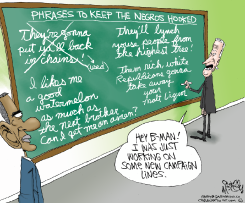 PHRASES TO KEEP THE NEGROS HOOKED
They're gonna
put y'all back
in chains!
(used)
I likes me
a good
watermelon
as much as
the next brother.
Can I get me an amen?
They'll lynch
youse people from
the highest tree!
Them rich white
Republicans gonna
take away
your
malt liquor
HEY B-MAN!
I WAS JUST
WORKING ON
SOME NEW CAMPAIGN
LINES.